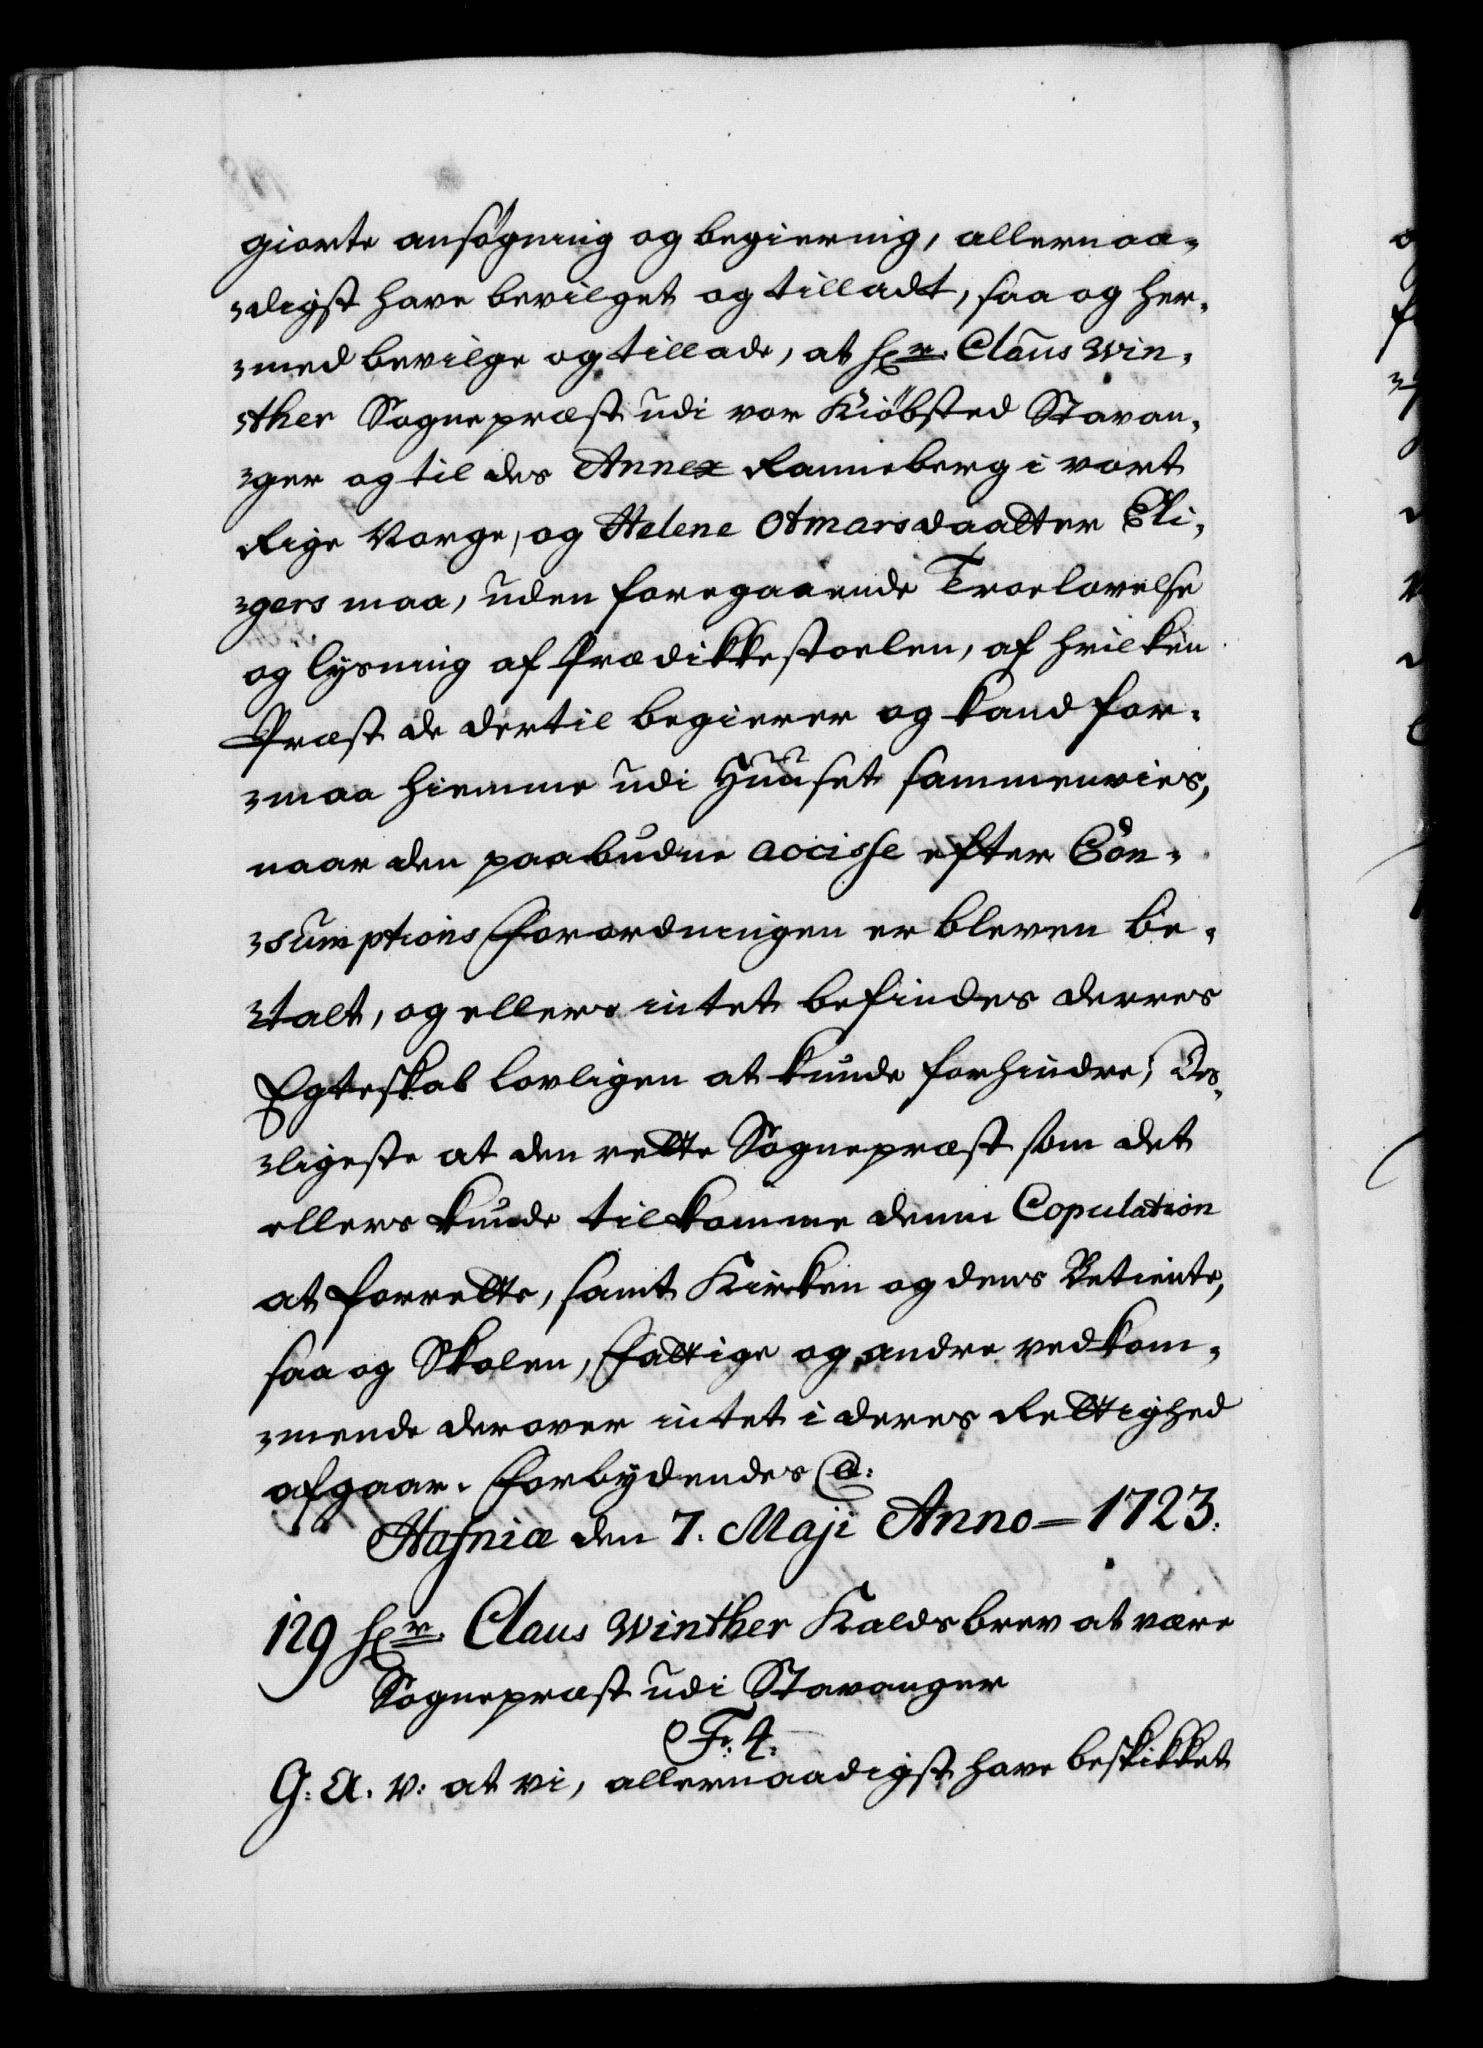 giorte ansøgning og begiering, allernaa-
-digst have bevilget og tilladt, saa og her-
-med bevilge og tillade, at Hr. Claus Win-
-ther Sognepræst udi vor Kiøbsted Stavan-
-ger og til des Annex Ranneberg i vort
Rige Norge, og Helene Otmarsdaatter Eli-
-gers maa, uden foregaaende Troelovelse
og lysning af Prædikkestoelen, af hvilken
Præst de dertil begierer og kand for-
-maa hiemme udi Huuset sammenvies,
naar den paabudne accisse efter Con-
-sumptions Forordningen er bleven be-
-talt, og ellers intet befindes derres
Egteskab lovligen at kunde forhindre; Des-
-ligeste at den rette Sognepræst som det
ellers kunde tilkomme denne Copulation
at forrette, samt Kirken og dens Betiente,
saa og Skolen, Fattige og andre vedkom-
-mende derover intet i deres Rettighed
afgaar. Forbydendes &c:
Hafniæ den 7. Maji Anno = 1723.
129 Hr. Claus Winther Kaldsbrev at være
Sognepræst udi Stavanger
F: 4.
G: A. V: at vi, allernaadigst have beskikket